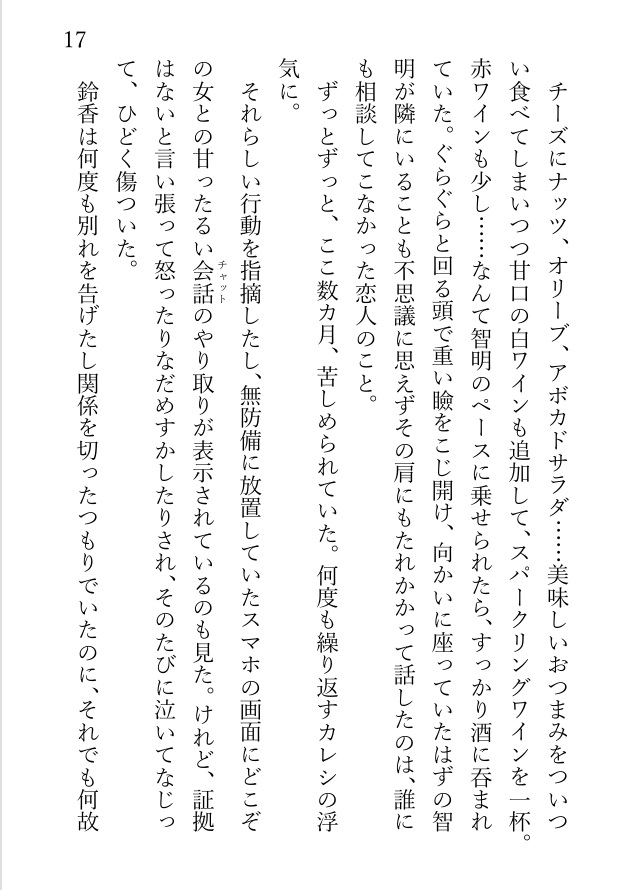 17
チーズにナッツ、オリーブ、アボカドサラダ……美味しいおつまみをついつ
い食べてしまいつつ甘口の白ワインも追加して、スパークリングワインを一杯。
赤ワインも少し……なんて智明のペースに乗せられたら、すっかり酒に呑まれ
ていた。ぐらぐらと回る頭で重い瞼をこじ開け、向かいに座っていたはずの智
明が隣にいることも不思議に思えずその肩にもたれかかって話したのは、誰に
も相談してこなかった恋人のこと。
ずっとずっと、ここ数カ月、苦しめられていた。何度も繰り返すカレシの浮
気に。
それらしい行動を指摘したし、無防備に放置していたスマホの画面にどこぞ
の女との甘ったるい会話チャットのやり取りが表示されているのも見た。けれど、証拠
はないと言い張って怒ったりなだめすかしたりされ、そのたびに泣いてなじっ
て、ひどく傷ついた。
鈴香は何度も別れを告げたし関係を切ったつもりでいたのに、それでも何故